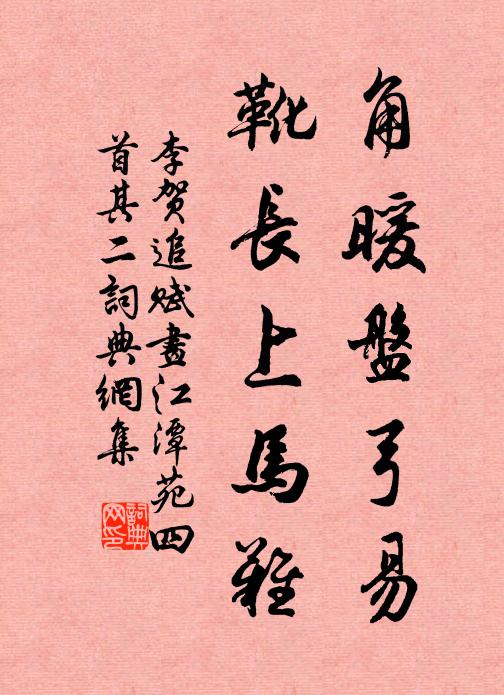 角暖盤弓易
靴長上馬難
李賀追賦畫江潭苑四
首其二詞典網集
詞典
网印